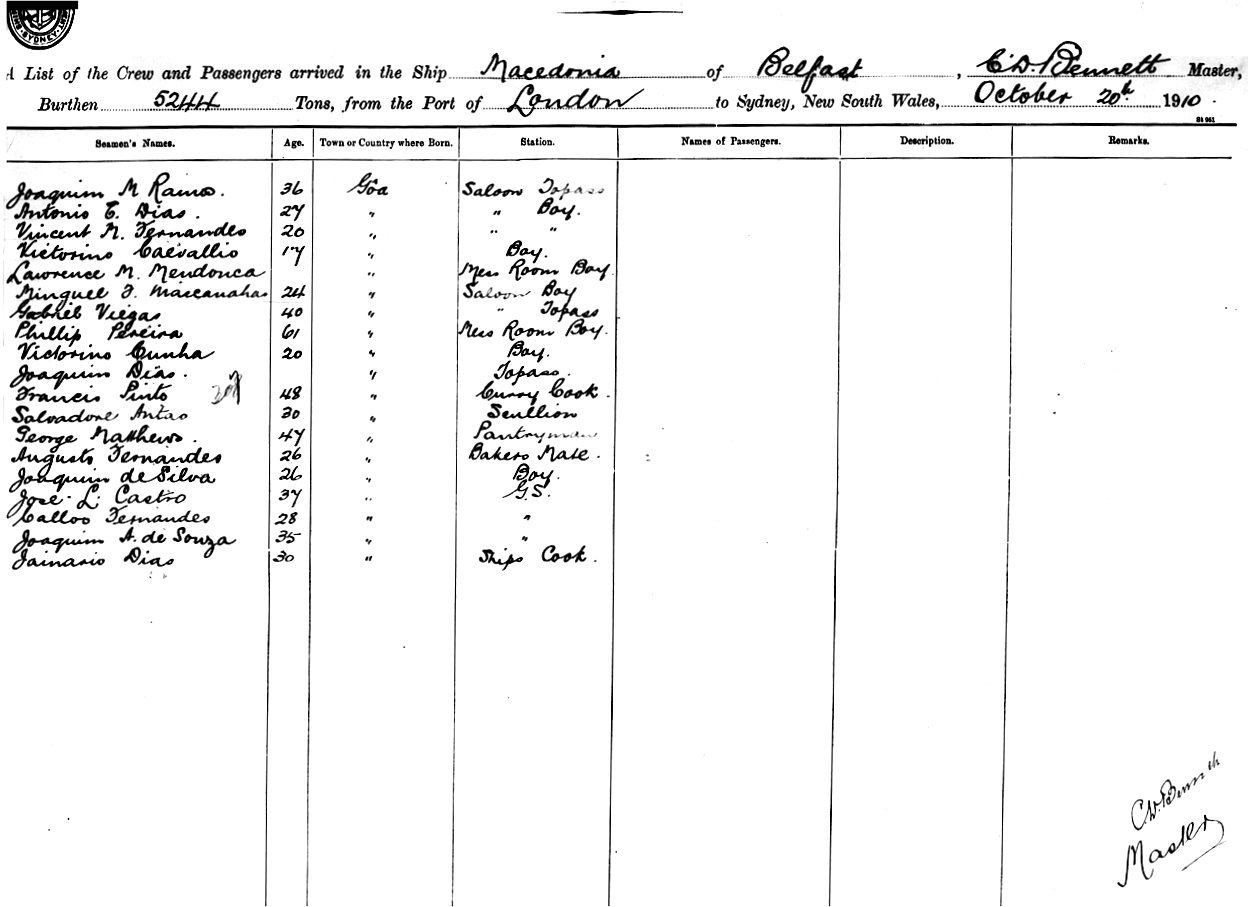 SYDNEY
A List of the Crew and Passengers arrived in the Ship Macedonia of Belfast, C.D. Bennett Master,
Burthen 5244 Tons, from the Port of London to Sydney, New South Wales, October 20th 1910.
St 961
Seamen's Names. Age. Town or Country where Born. Station. Names of Passengers. Description. Remarks.
Joaquim M Ramos. 36 Goa Saloon Topass
Antonio C. Dias. 27 " " Boy.
Vincent M. Fernandes 20 " " "
Victorino Caevallio 17 " Boy.
Lawrence M. Mendonca " Mess Room Boy.
Minguel F. Mascanahas 24 " Saloon Boy
Gabriel Viegas 40 " " Topass
Phillip Pereira 61 " Mess Room Boy.
Victorino Cunha 20 " Boy.
Joaquim Dias. " Topass.
Francis Pinto 48 " Curry Cook.
Salvadore Antao 30 " Scullion
George Matthews. 47 " Pantryman
Augusto Fernandes 26 " Bakers Mate.
Joaquim de Silva 26 " Boy.
Jose L. Castro 37 " G.S.
Calloo Fernandes 28 " "
Joaquim A. de Souza 35 " "
Jainario Dias 30 " Ships Cook.
C.D. Bennett
Master